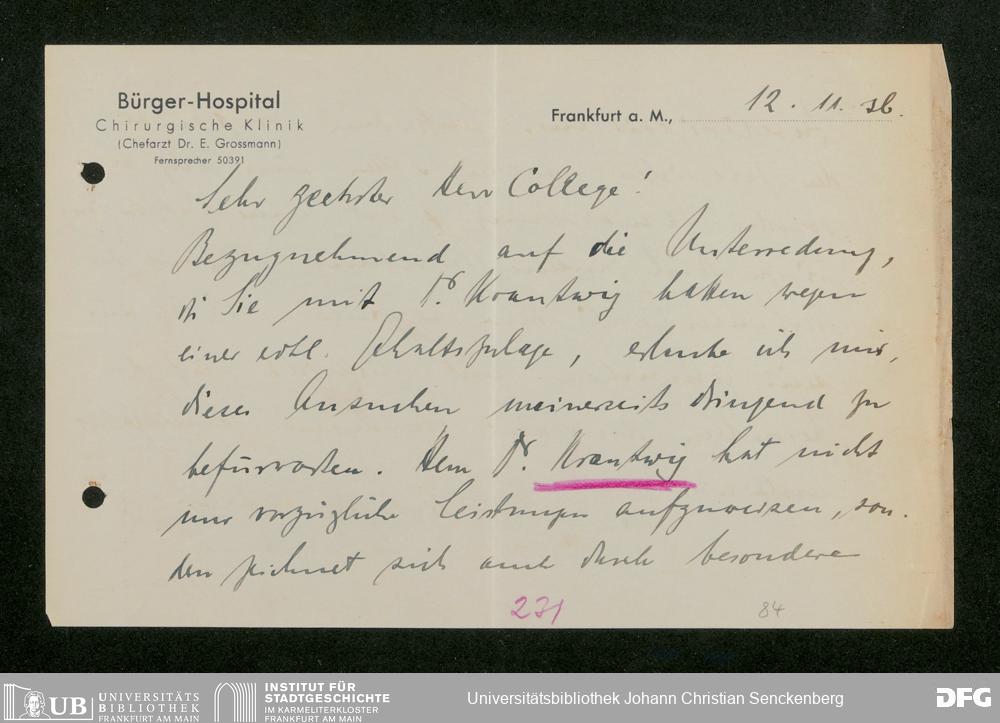 Bürger-Hospital
Chirurgische Klinik
(Chefarzt Dr. E. Grossmann)
Fernsprecher 50391
Frankfurt a. M., 12. 11. 36.
Sehr geehrter Herr College!
Bezugnehmend auf die Unterredung,
die Sie mit Dr. Krautwig hatten wegen
einer evtl. Gehaltszulage, erlaube ich mir,
dieses Ansuchen meinerseits dringend zu
befürworten. Herr Dr. Krautwig hat nicht
nur vorzügliche Leistungen aufzuweisen, son-
dern zeichnet sich auch durch besondere
231
84
UB UNIVERSITÄTS
BIBLIOTHEK
FRANKFURT AM MAIN
INSTITUT FÜR
STADTGESCHICHTE
IM KARMELITERKLOSTER
FRANKFURT AM MAIN
Universitätsbibliothek Johann Christian Senckenberg
DFG